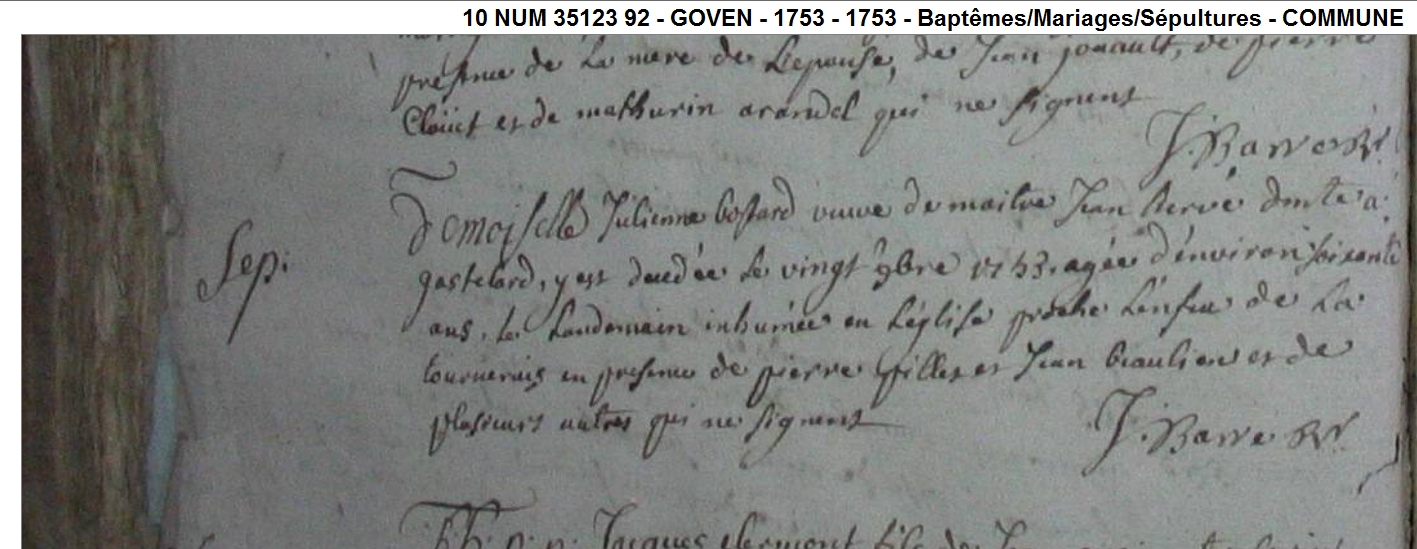 10 NUM 35123 92 - GOVEN - 1753 - 1753 - Baptêmes/Mariages/Sépultures - COMMUNE
presence de La mere de Lepouse, de Jean jouault, de pierre
Cloüet et de mathurin arondel qui ne signent
J. Barre
Sep:
Demoiselle Julienne bossard veuve de maitre Jean hervé dmte a
gastelard, y est decedée le vingt 9bre 1753. agée d'environ soixante
ans, le Landemain inhumée en L'église proche L'enfeu de La
tournerais en presence de pierre gilles et Jean beaulieu et de
plusieurs autres qui ne signent
J. Barre
Jacques clermont fils de Jean